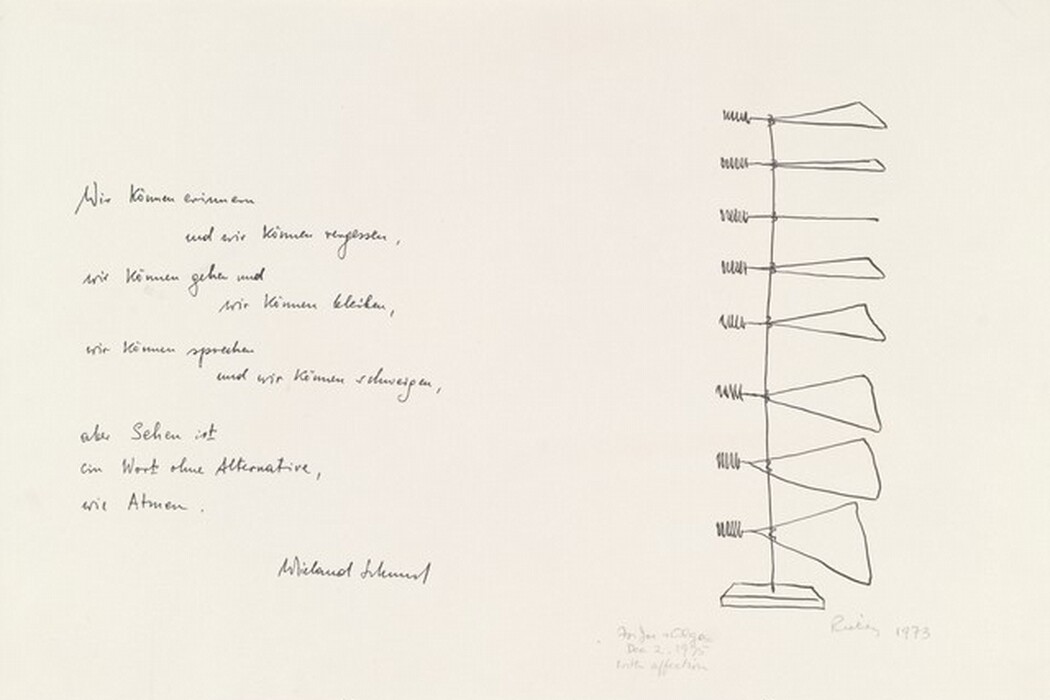 Wir können erinnern
und wir können vergessen,
wir können gehen und
wir können bleiben,
wir können sprechen
und wir können schweigen,
aber Sehen ist
ein Wort ohne Alternative,
wie Atmen.
Wieland Schmied
Rickey 1973
For Joe + Olga
Dec 2. 1975
with affection